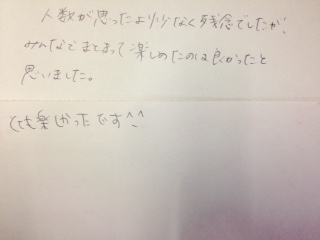 人数が思ったより少なく残念でしたが、
みんなでまとまって楽しめたのは良かったと
思いました。
とても楽しかったです^^